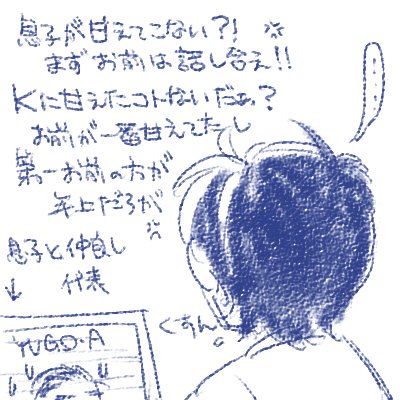 息子が甘えてこない?!
まずお前は話し合え!!
Kに甘えたコトないだぁ?
お前が一番甘えてたし
第一お前の方が
年上だろが
息子と仲良し
代表
↓
くすん
YUGO・A